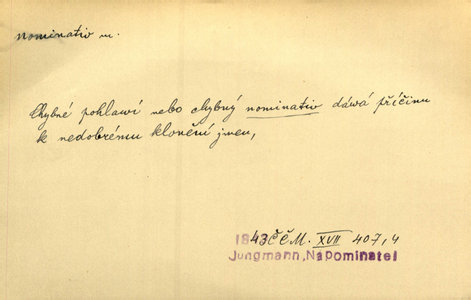 nominativ m.
Chybné pohlawí nebo chybný nominativ dáwá příčinu
k nedobrému klonění jmen,
1843 ČČM. XVII 407,4
Jungmann, Napominatel